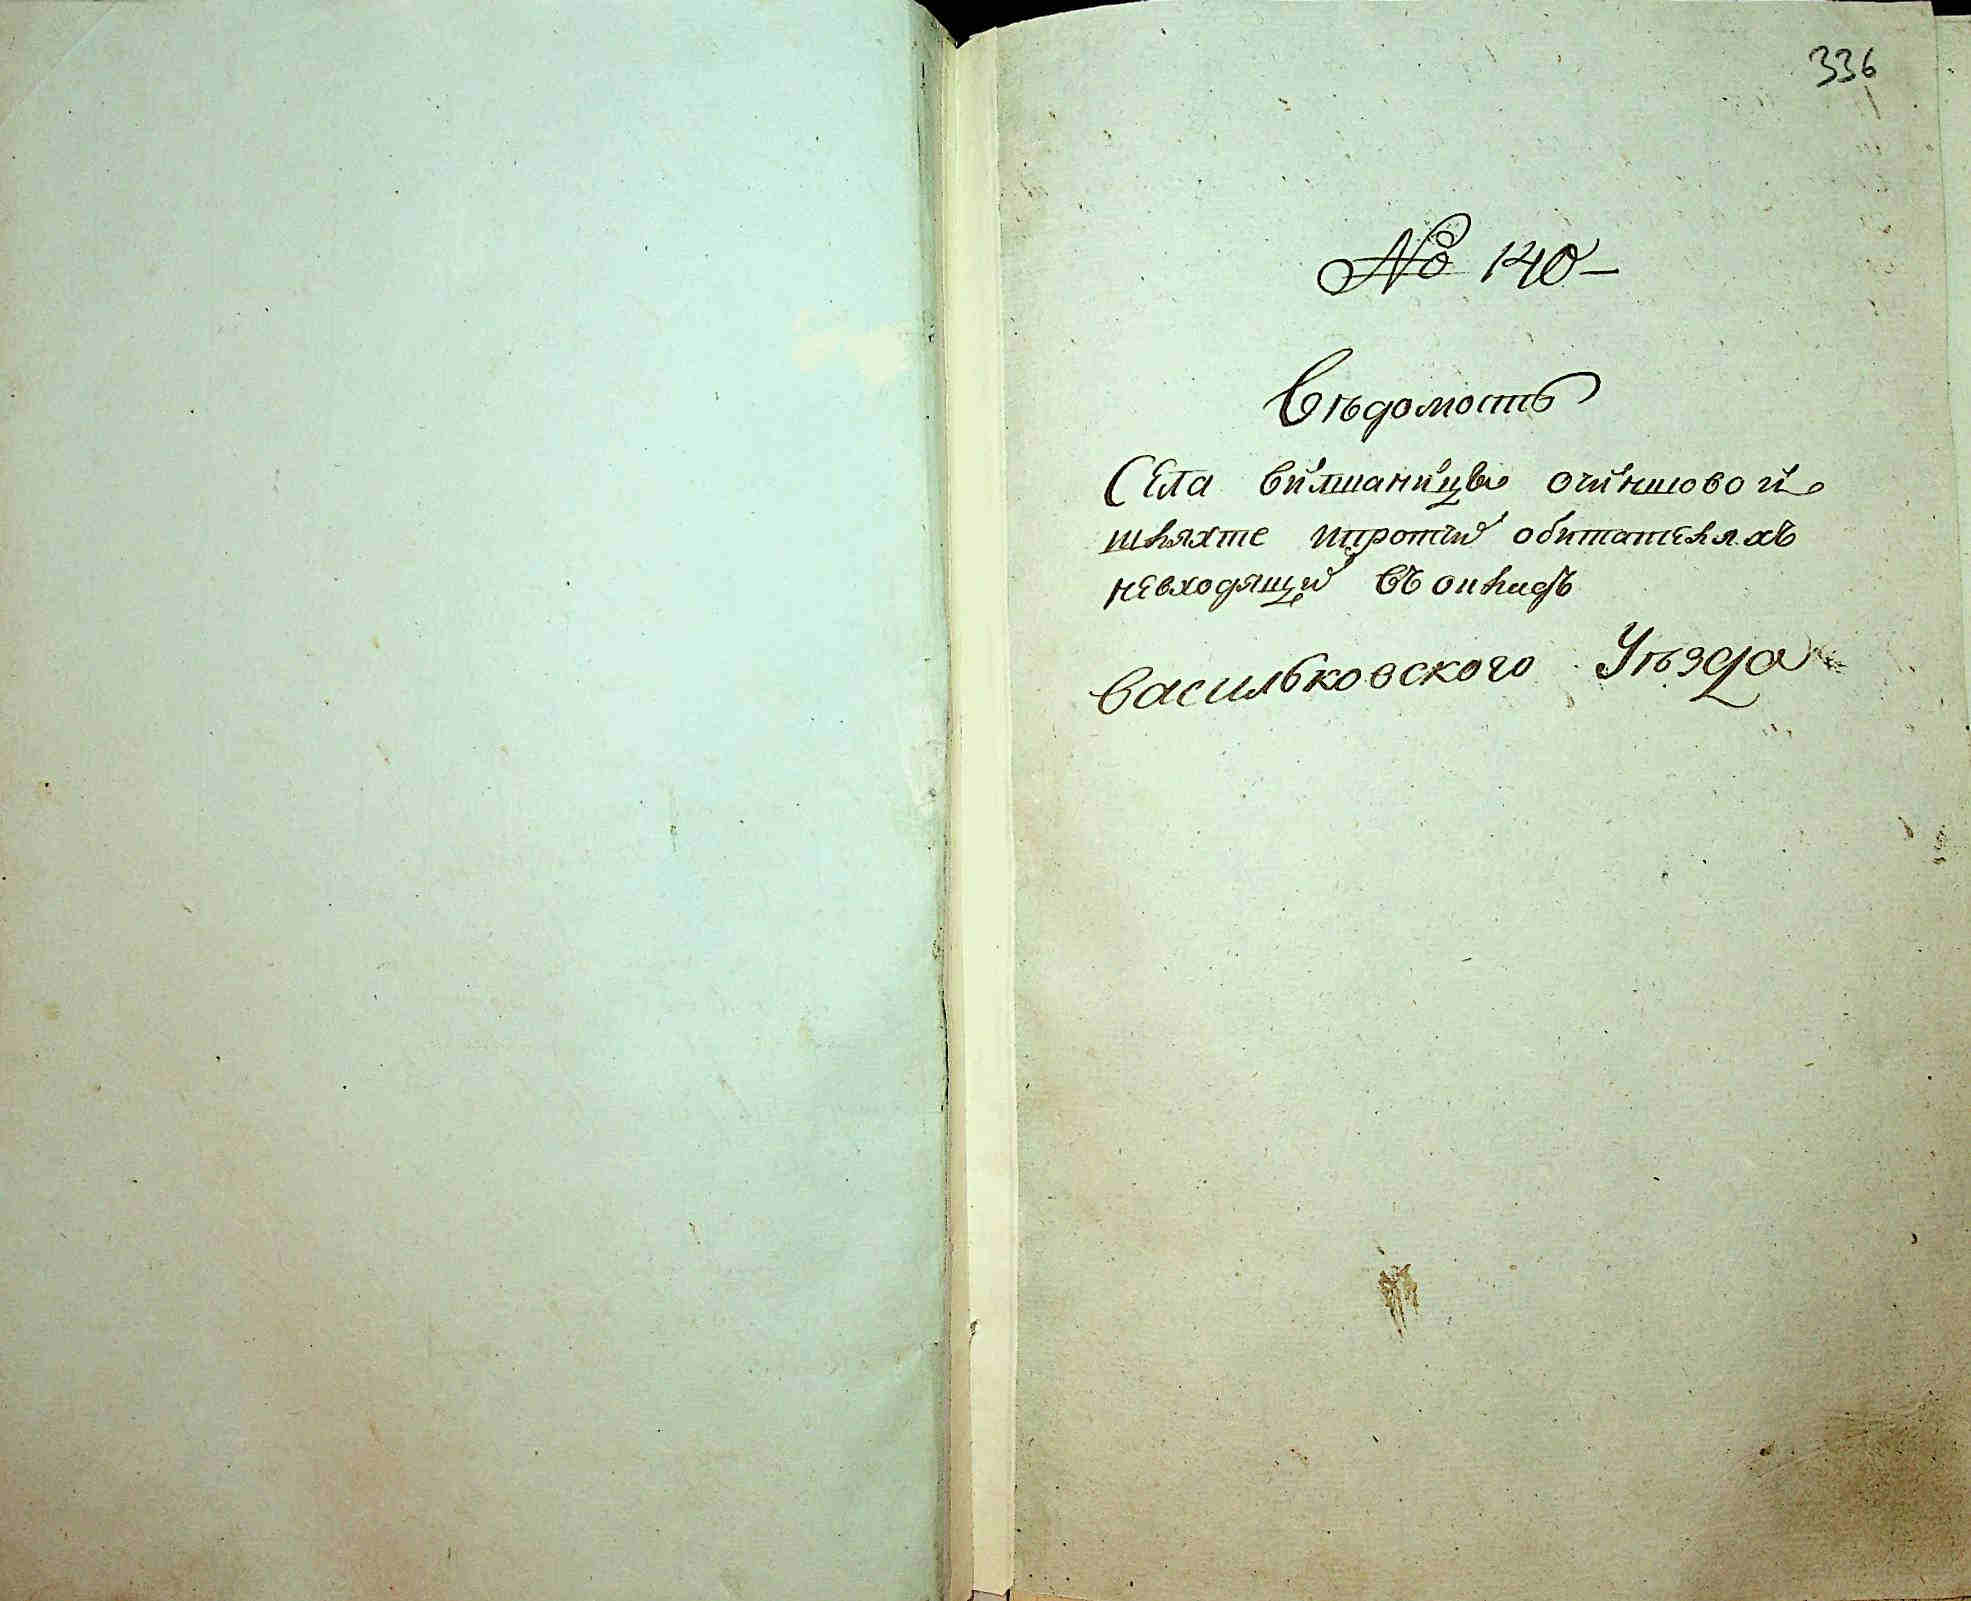 336
№ 140
Вѣдомость
Села вилшаницы очиншовой
шляхте ипротчи обитателяхъ
невходящи въ окладъ
васильковского Уѣзда